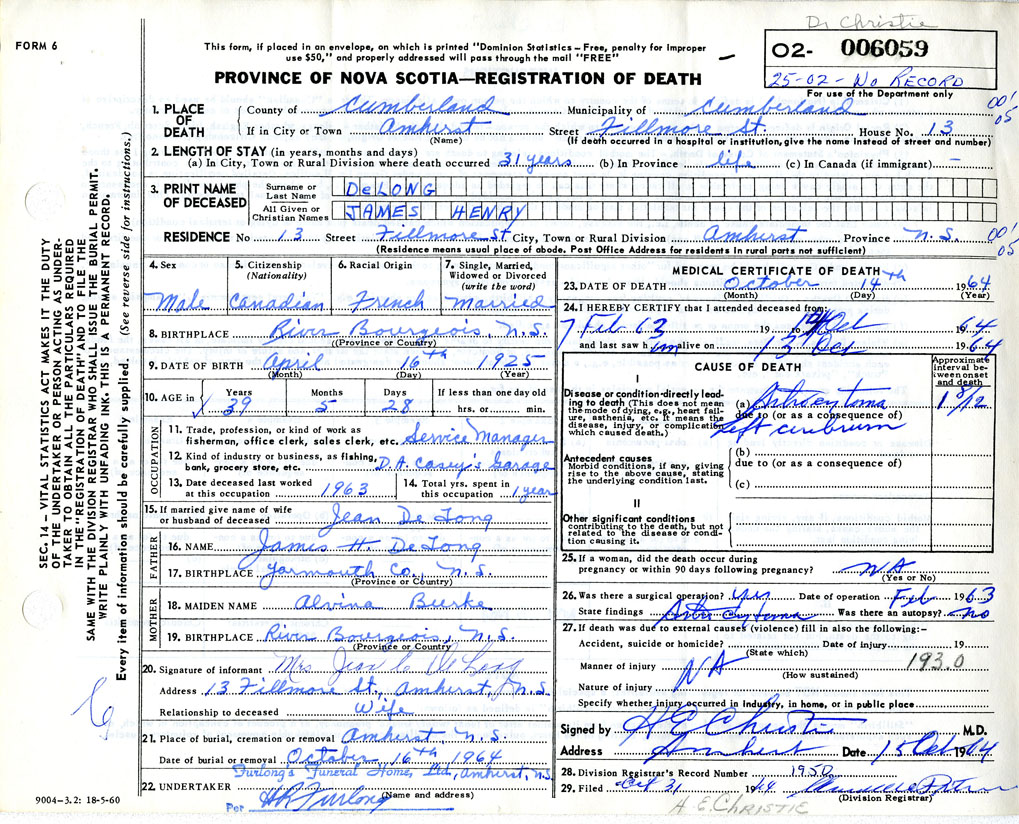 Dr Christie
FORM 6
This form, if placed in an envelope, on which is printed "Dominion Statistics – Free, penalty for improper
use $50," and properly addressed will pass through the mail "FREE"
O2- 006059
25-02-No RECORD
For use of the Department only
PROVINCE OF NOVA SCOTIA—REGISTRATION OF DEATH
001
05
1. PLACE OF DEATH County of Cumberland Municipality of Cumberland
If in City or Town Amherst Street Fillmore St. House No. 13
(Name) (If death occurred in a hospital or institution, give name instead of street and number)
2. LENGTH OF STAY (in years, months and days)
(a) In City, Town or Rural Division where death occurred 31 years (b) In Province life (c) In Canada (if immigrant) –
3. PRINT NAME OF DECEASED Surname or Last Name DeLONG
All Given or Christian Names JAMES HENRY
RESIDENCE No 13 Street Fillmore St. City, Town or Rural Division Amherst Province N.S.
001
05
(Residence means usual place of abode. Post Office Address for residents in rural parts not sufficient)
SEC. 14 – VITAL STATISTICS ACT MAKES IT THE DUTY
OF THE UNDERTAKER OR PERSON ACTING AS UNDER-
TAKER TO OBTAIN ALL THE PARTICULARS REQUIRED
IN THE "REGISTRATION OF DEATH" AND TO FILE THE
SAME WITH THE DIVISION REGISTRAR WHO SHALL ISSUE THE BURIAL PERMIT.
WRITE PLAINLY WITH UNFADING INK. THIS IS A PERMANENT RECORD.
Every item of information should be carefully supplied. (See reverse side for instructions.)
4. Sex Male
5. Citizenship (Nationality) Canadian
6. Racial Origin French
7. Single, Married, Widowed or Divorced (write the word) Married
8. BIRTHPLACE River Bourgeois, N.S.
(Province or Country)
9. DATE OF BIRTH April 16th 1925
(Month) (Day) (Year)
10. AGE in Years 39 Months 5 Days 28 If less than one day old hrs. or min.
OCCUPATION
11. Trade, profession, or kind of work as
fisherman, office clerk, sales clerk, etc. Service Manager
12. Kind of industry or business, as fishing,
bank, grocery store, etc. D.A. Casey's Garage
13. Date deceased last worked at this occupation 1963
14. Total yrs. spent in this occupation 1 year
15. If married give name of wife or husband of deceased Jean De Long
FATHER
16. NAME James H. De Long
17. BIRTHPLACE Yarmouth Co., N.S.
(Province or Country)
MOTHER
18. MAIDEN NAME Alvina Burke
19. BIRTHPLACE River Bourgeois, N.S.
(Province or Country)
20. Signature of informant Mrs Jean C De Long
Address 13 Fillmore St., Amherst, N.S.
Relationship to deceased Wife
21. Place of burial, cremation or removal Amherst N.S.
Date of burial or removal October 16th, 1964
Furlong's Funeral Home, Ltd., Amherst, N.S.
22. UNDERTAKER (Name and address)
Per HR Furlong
9004-3.2: 18-5-60
MEDICAL CERTIFICATE OF DEATH
23. DATE OF DEATH October 14th 1964
(Month) (Day) (Year)
24. I HEREBY CERTIFY that I attended deceased from:
7 Feb 63 19 to 14 Oct 1964
and last saw him alive on 13 Oct 1964
CAUSE OF DEATH
Approximate interval between onset and death
I
Disease or condition directly leading to death (This does not mean the mode of dying, e.g., heart failure, asthenia, etc. It means the disease, injury, or complication which caused death.)
(a) Astrocytoma 1 8/12
due to (or as a consequence of)
left cerebrum
Antecedent causes
Morbid conditions, if any, giving rise to the above cause, stating the underlying condition last.
(b)
due to (or as a consequence of)
(c)
II
Other significant conditions
contributing to the death, but not related to the disease or condition causing it.
25. If a woman, did the death occur during
pregnancy or within 90 days following pregnancy? NA
(Yes or No)
26. Was there a surgical operation? Yes Date of operation Feb 1963
State findings Astrocytoma Was there an autopsy? no
27. If death was due to external causes (violence) fill in also the following:–
Accident, suicide or homicide? Date of injury 19
(State which)
Manner of injury NA 193.0
(How sustained)
Nature of injury
Specify whether injury occurred in Industry, in home, or in public place
Signed by H E Christie M.D.
Address Amherst Date 15 Oct 1964
28. Division Registrar's Record Number 1950
29. Filed Oct 31 1964
(Division Registrar)
H. E. CHRISTIE